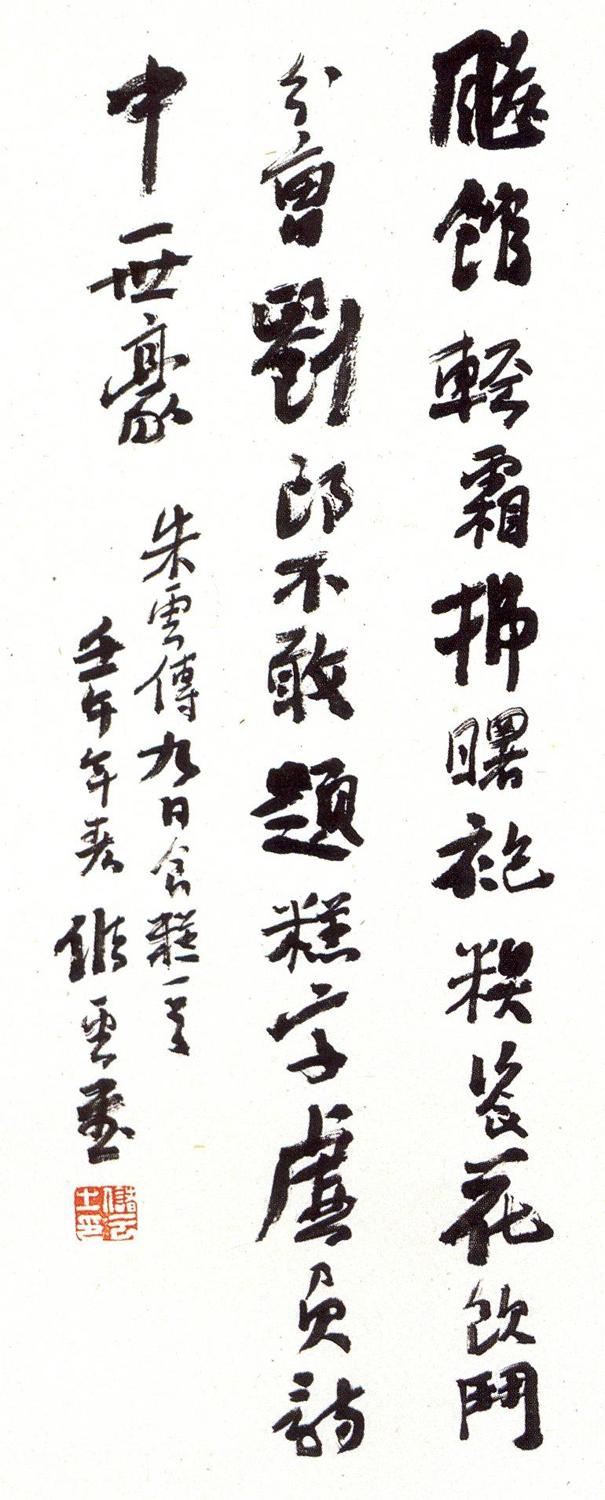 飈館輕霜拂曙袍糗餈花飲鬥
分曹劉郎不敢題糕字虛負詩
中一世豪
朱雲傳九日食糕一首
壬午年春儲雲